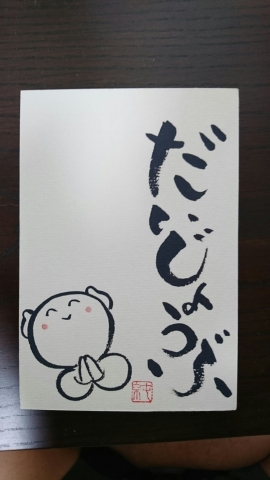 だいじょうぶ